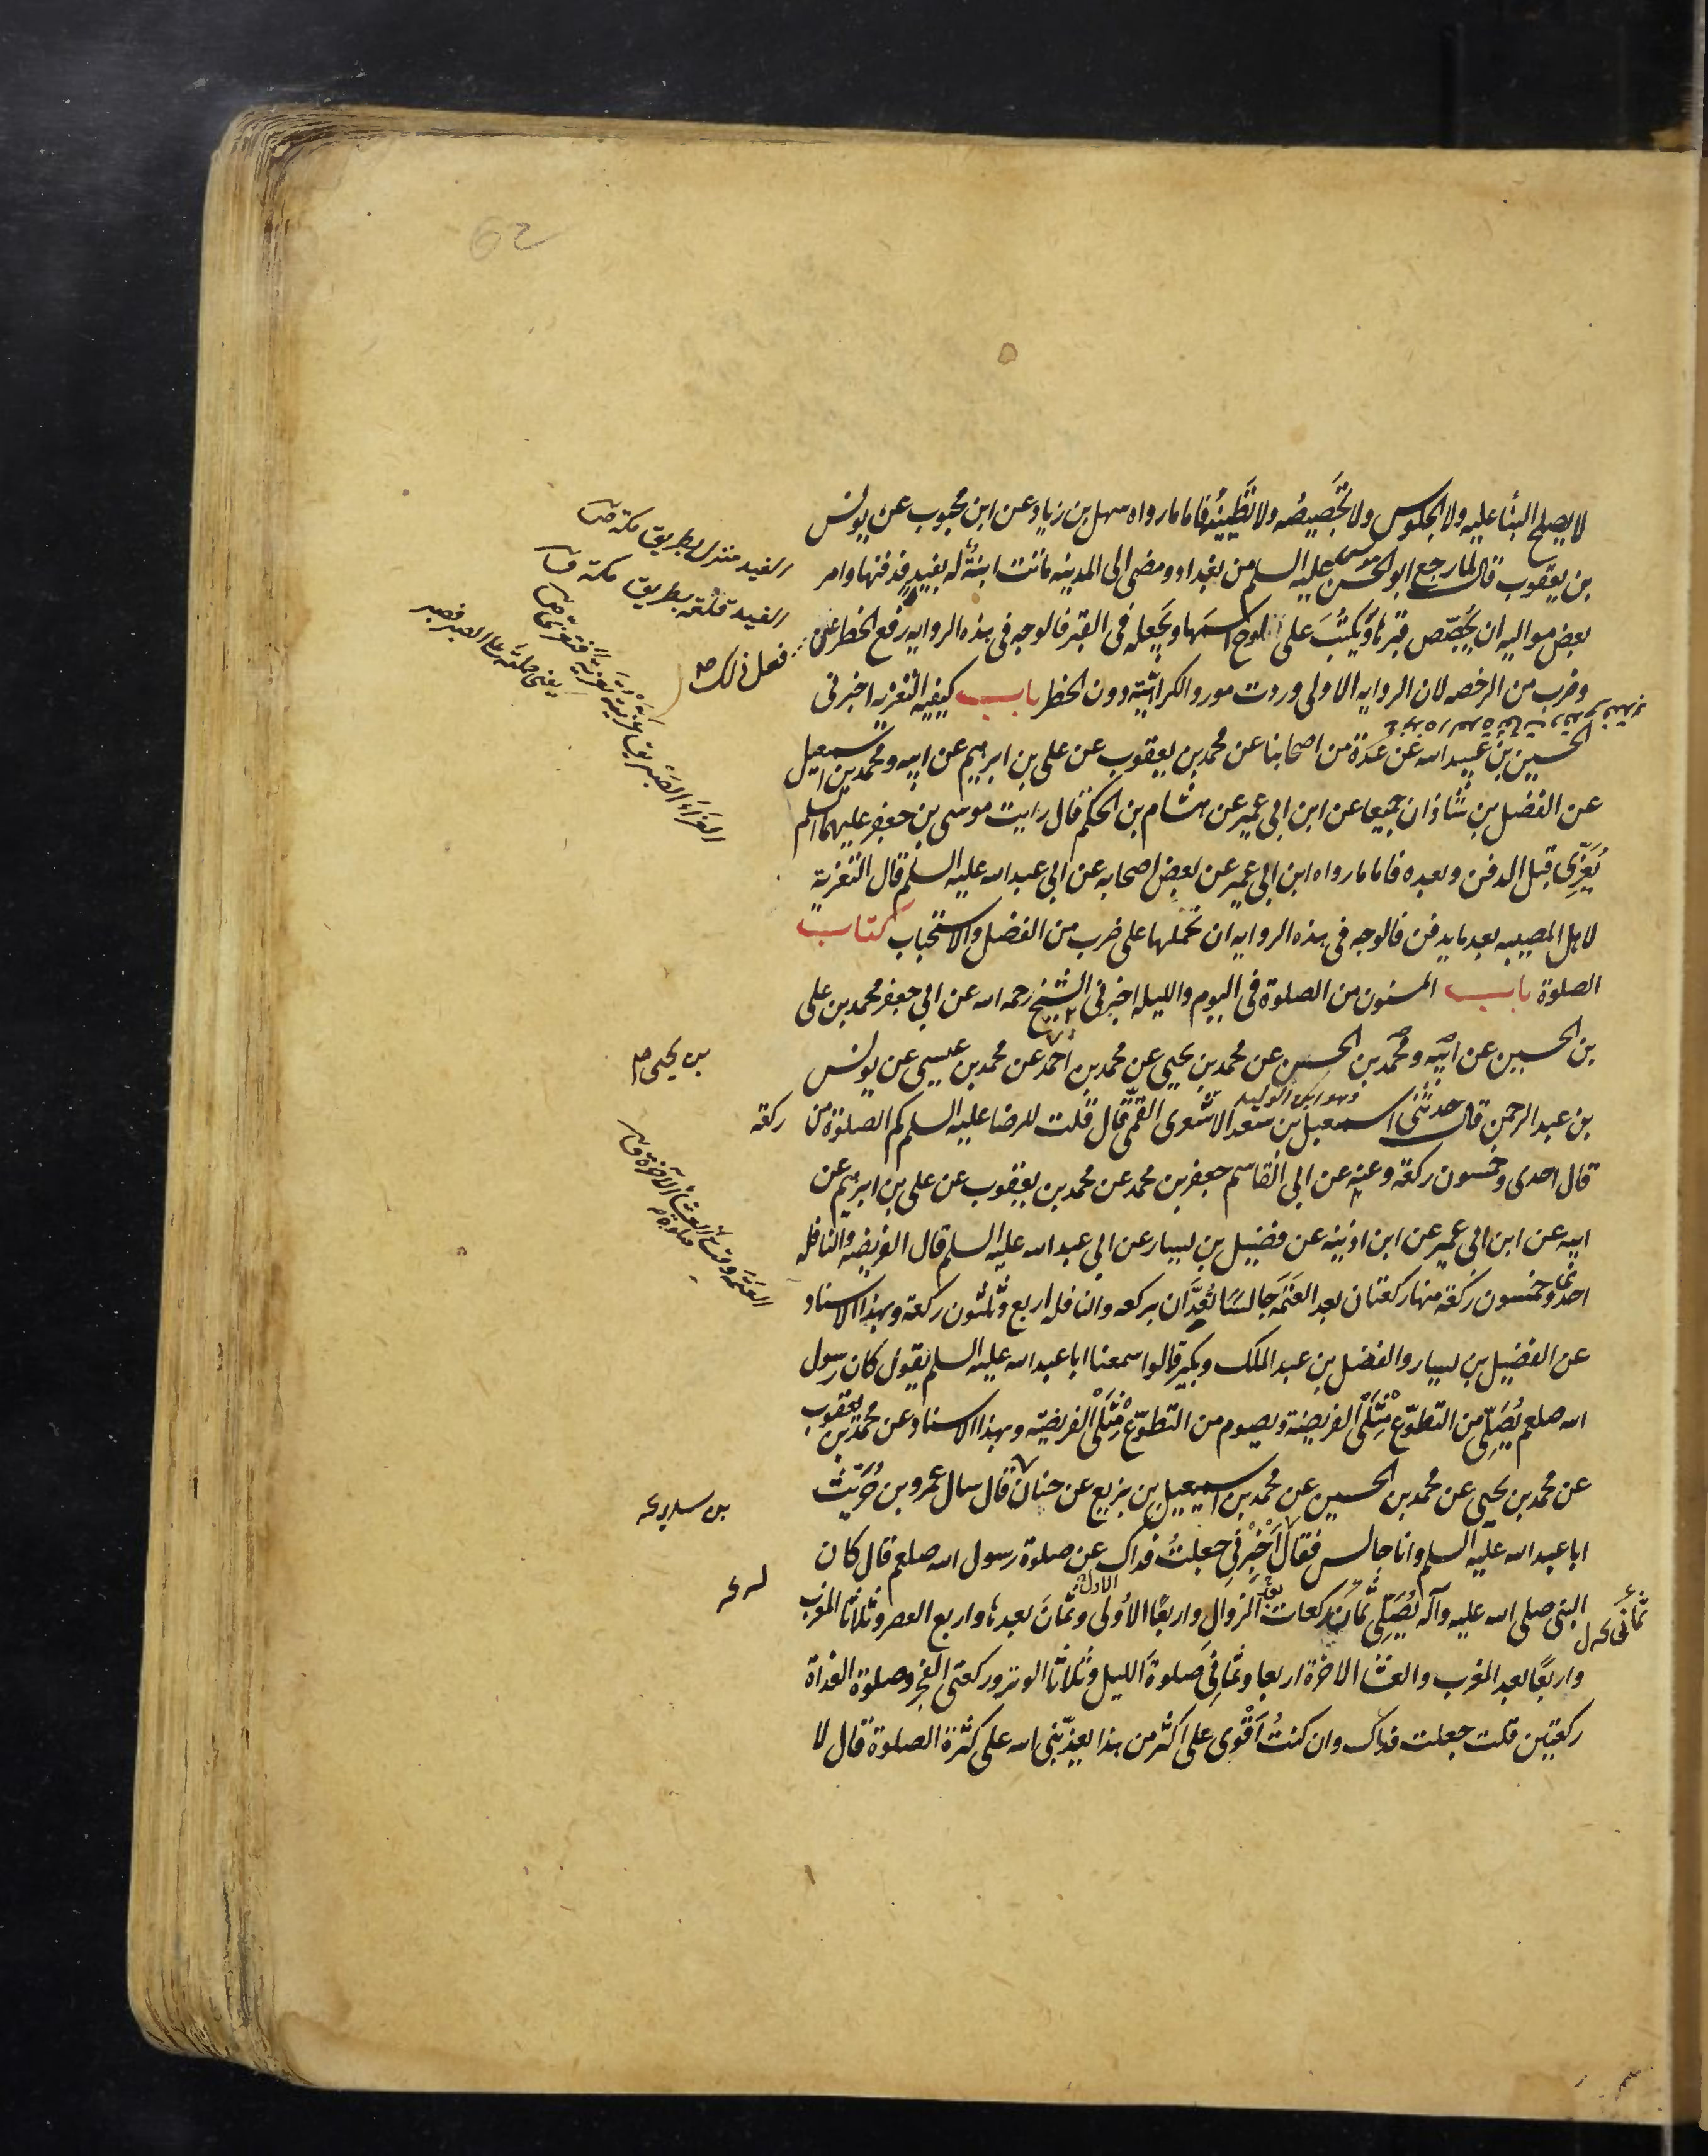 لا يصلح البنأ عليه ولا الجلوس ولا تجصيصُه ولا تَطْيينُه فاما ما رواه سهل بن زياد عن ابن محبوب عن يونس
بن يعقوب قال لما رجع ابو الحسن موسى عليه السلم من بغداد ومضى الى المدينه ماتت ابنةٌ له بفيد فدفنها وامر
بعض مواليه ان يُجصّص قبرها ويكتبَ على لوح اسمَها ويجعله فى القبر فالوجه فى هذه الروايه رفع الحظر عمن
فعل ذلك صح
وضرب من الرخصه لان الروايه الاولى وردت مورد الكراهية دون الحظر باب كيفيه التعزيه اخبرنى
الحسين بن عبيد الله عن عدة من اصحابنا عن محمد بن يعقوب عن على بن ابرهيم عن ابيه ومحمد بن اسمعيل
عن الفضل بن شاذان جميعا عن ابن ابى عمير عن هشام بن الحكم قال رايت موسى بن جعفر عليهما السلم
يُعَزّى قبل الدفن وبعده فاما ما رواه ابن ابى عمير عن بعض اصحابه عن ابى عبد الله عليه السلم قال التعزية
لاهل المصيبه بعد ما يدفن فالوجه فى هذه الروايه ان نحملها على ضرب من الفضل والاستحباب كتاب
الصلوة باب المسنون من الصلوة فى اليوم والليله اخبرنى الشيخ رحمه الله عن ابى جعفر محمد بن على
بن الحسين عن ابيه ومحمد بن الحسين عن محمد بن يحيى عن محمد بن احمد عن محمد بن عيسى عن يونس
بن يحيى صح
وهو ابن الوليد
بن عبد الرحمن قال حدثنى اسمعيل بن سعد الاشعرى القمّى قال قلت للرضا عليه السلم كم الصلوة من ركعة
قال احدى وخمسون ركعة وعنه عن ابى القاسم جعفر بن محمد عن محمد بن يعقوب عن على بن ابرهيم عن
ابيه عن ابن ابى عمير عن ابن اذينه عن فضيل بن يسار عن ابى عبد الله عليه السلم قال الفريضه والنافله
احدى وخمسون ركعة منها ركعتان بعد العَتَمَه جالسًا تُعدَّان بركعه والنافله اربع وثلثون ركعة وبهذا الاسناد
عن الفضيل بن يسار والفضل بن عبد الملك وبكير قالوا سمعنا ابا عبد الله عليه السلم يقول كان رسول
الله صلعم يُصَلّى من التطوّع مِثْلَى الفريضة ويصوم من التطوّع مِثْلَى الفريضة وبهذا الاسناد عن محمد بن يعقوب
عن محمد بن يحيى عن محمد بن الحسين عن محمد بن اسمعيل بن بزيع عن حنان قال سال عمرو بن حُرَيْث
بن سدير
ابا عبد الله عليه السلم وانا جالس فقال اَخْبِرْنى جعلتُ فداك عن صلوة رسول الله صلعم قال كان
النبى صلى الله عليه وآله يُصَلّى ثمانَ ركعات الزوال واربعًا الأولى وثمانَ بعدها واربع العصر وثلاثا المغرب
واربعًا بعد المغرب والعشا الاخرة اربعا وثمانِىَ صلوةَ الليل وثلاثا الوتر وركعتى الفجر وصلوة الغداة
ركعتين قلت جعلت فداك وان كنتُ أقْوى على اكثر من هذا يعذّبنى الله على كثرة الصلوة قال لا
الفيد منزل بطريق مكة
الفيد قلعة بطريق مكة
العتمة وقت العشاء الآخرة